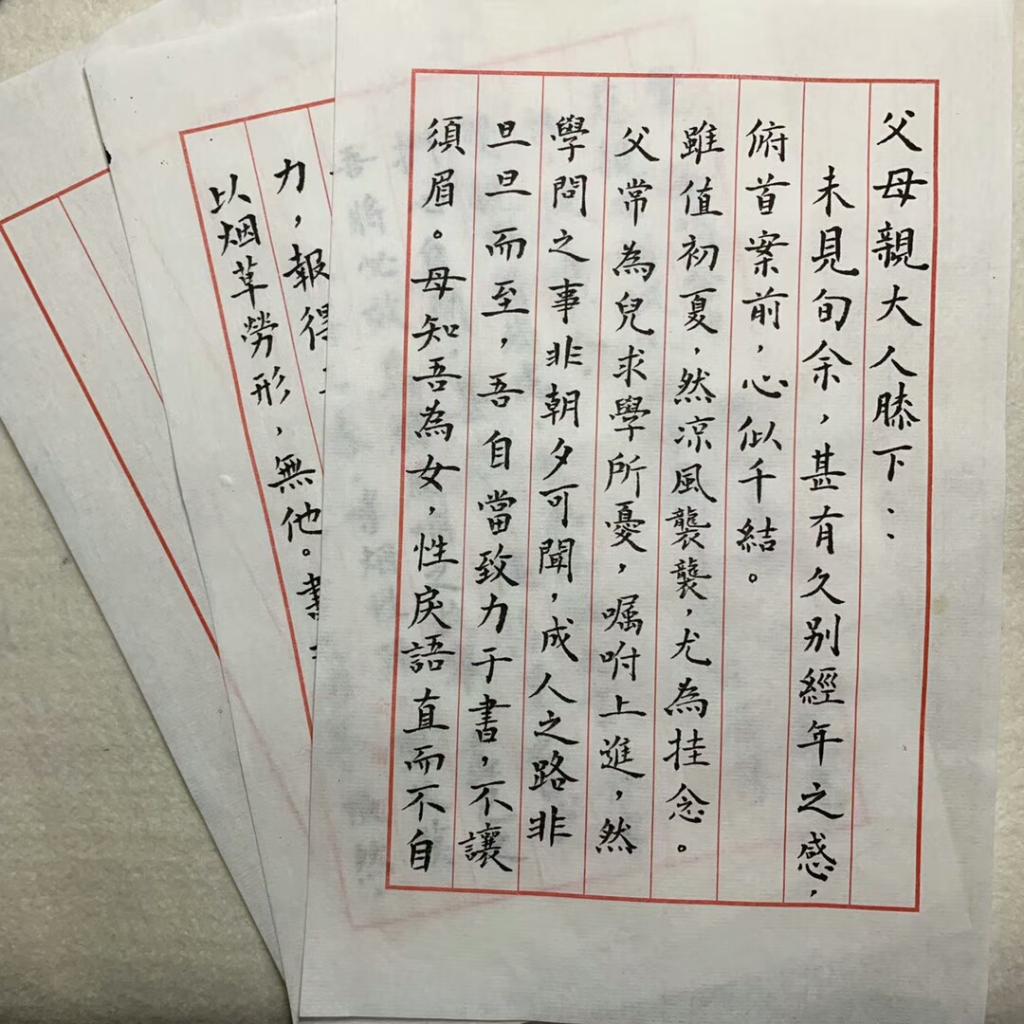 父母親大人膝下：
未見旬余，甚有久别經年之感，
俯首案前，心似千結。
雖值初夏，然凉風襲襲，尤為挂念。
父常為兒求學所憂，嘱咐上進，然
學問之事非朝夕可聞，成人之路非
旦旦而至，吾自當致力于書，不讓
須眉。母知吾為女，性戾語直而不自
力，報得
以烟草勞形，無他。書